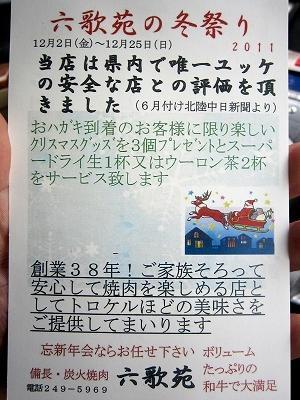 六歌苑の冬祭り
12月2日(金)~12月25日(日)
2011
当店は県内で唯一ユッケ
の安全な店との評価を頂
きました(6月付け北陸中日新聞より)
おハガキ到着のお客様に限り楽しい
クリスマスグッズを3個プレゼントとスーパ
ードライ生1杯又はウーロン茶2杯
をサービス致します
創業38年!ご家族そろって
安心して焼肉を楽しめる店と
してトロケルほどの美味さを
ご提供してまいります
忘新年会ならお任せ下さい
ボリューム
たっぷりの
和牛で大満足
備長・炭火焼肉
六歌苑
電話249-5969